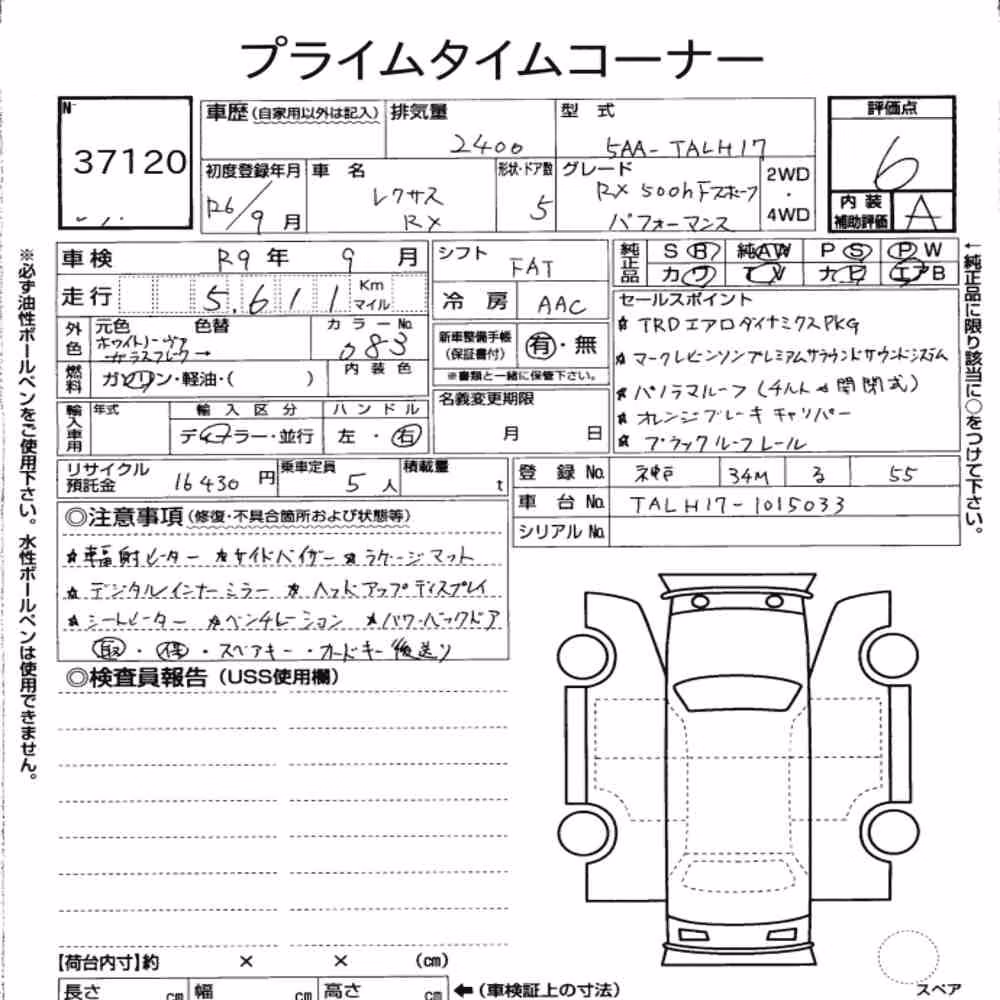 プライムタイムコーナー
№
37120
車歴(自家用以外は記入)
排気量
2400
型 式
5AA-TALH17
評価点
6
初度登録年月
R6/9月
車 名
レクサス
RX
形状・ドア数
5
グレード
RX 500h Fスポーツ
パフォーマンス
2WD
・
4WD
内装
補助評価
A
車検 R9年 9月
シフト
FAT
純正品
SR 純AW PS PW
カワ TV ナビ エアB
走行 5.611 Km
マイル
冷房 AAC
セールスポイント
☆ TRDエアロダイナミクスPKG
☆ マークレビンソンプレミアムサラウンドサウンドシステム
☆ パノラマルーフ(チルト&開閉式)
☆ オレンジブレーキキャリパー
☆ ブラックルーフレール
外色
元色 色替
カラーNo.
083
新車整備手帳
(保証書付)
有・無
※書類と一緒に保管下さい。
燃料
ガソリン・軽油・( )
内装色
名義変更期限
月 日
輸入車用
年式
輸入区分
ハンドル
ディーラー・並行
左・右
リサイクル
預託金
16430円
乗車定員
5人
積載量
t
登録No. 神戸 34M る 55
車台No. TALH17-1015033
シリアルNo.
◎注意事項(修復・不具合箇所および状態等)
☆輻射ヒーター ☆サイドバイザー ☆ラゲージマット
☆デジタルインナーミラー ☆ヘッドアップディスプレイ
☆シートヒーター ☆ベンチレーション ☆パワーバックドア
取・保・スペアキー・カードキー"後送り
◎検査員報告(USS使用欄)
【荷台内寸】約 × × (cm)
長さ cm 幅 cm 高さ cm
←(車検証上の寸法)
スペア
※必ず油性ボールペンをご使用下さい。水性ボールペンは使用できません。
←純正品に限り該当に○をつけて下さい。